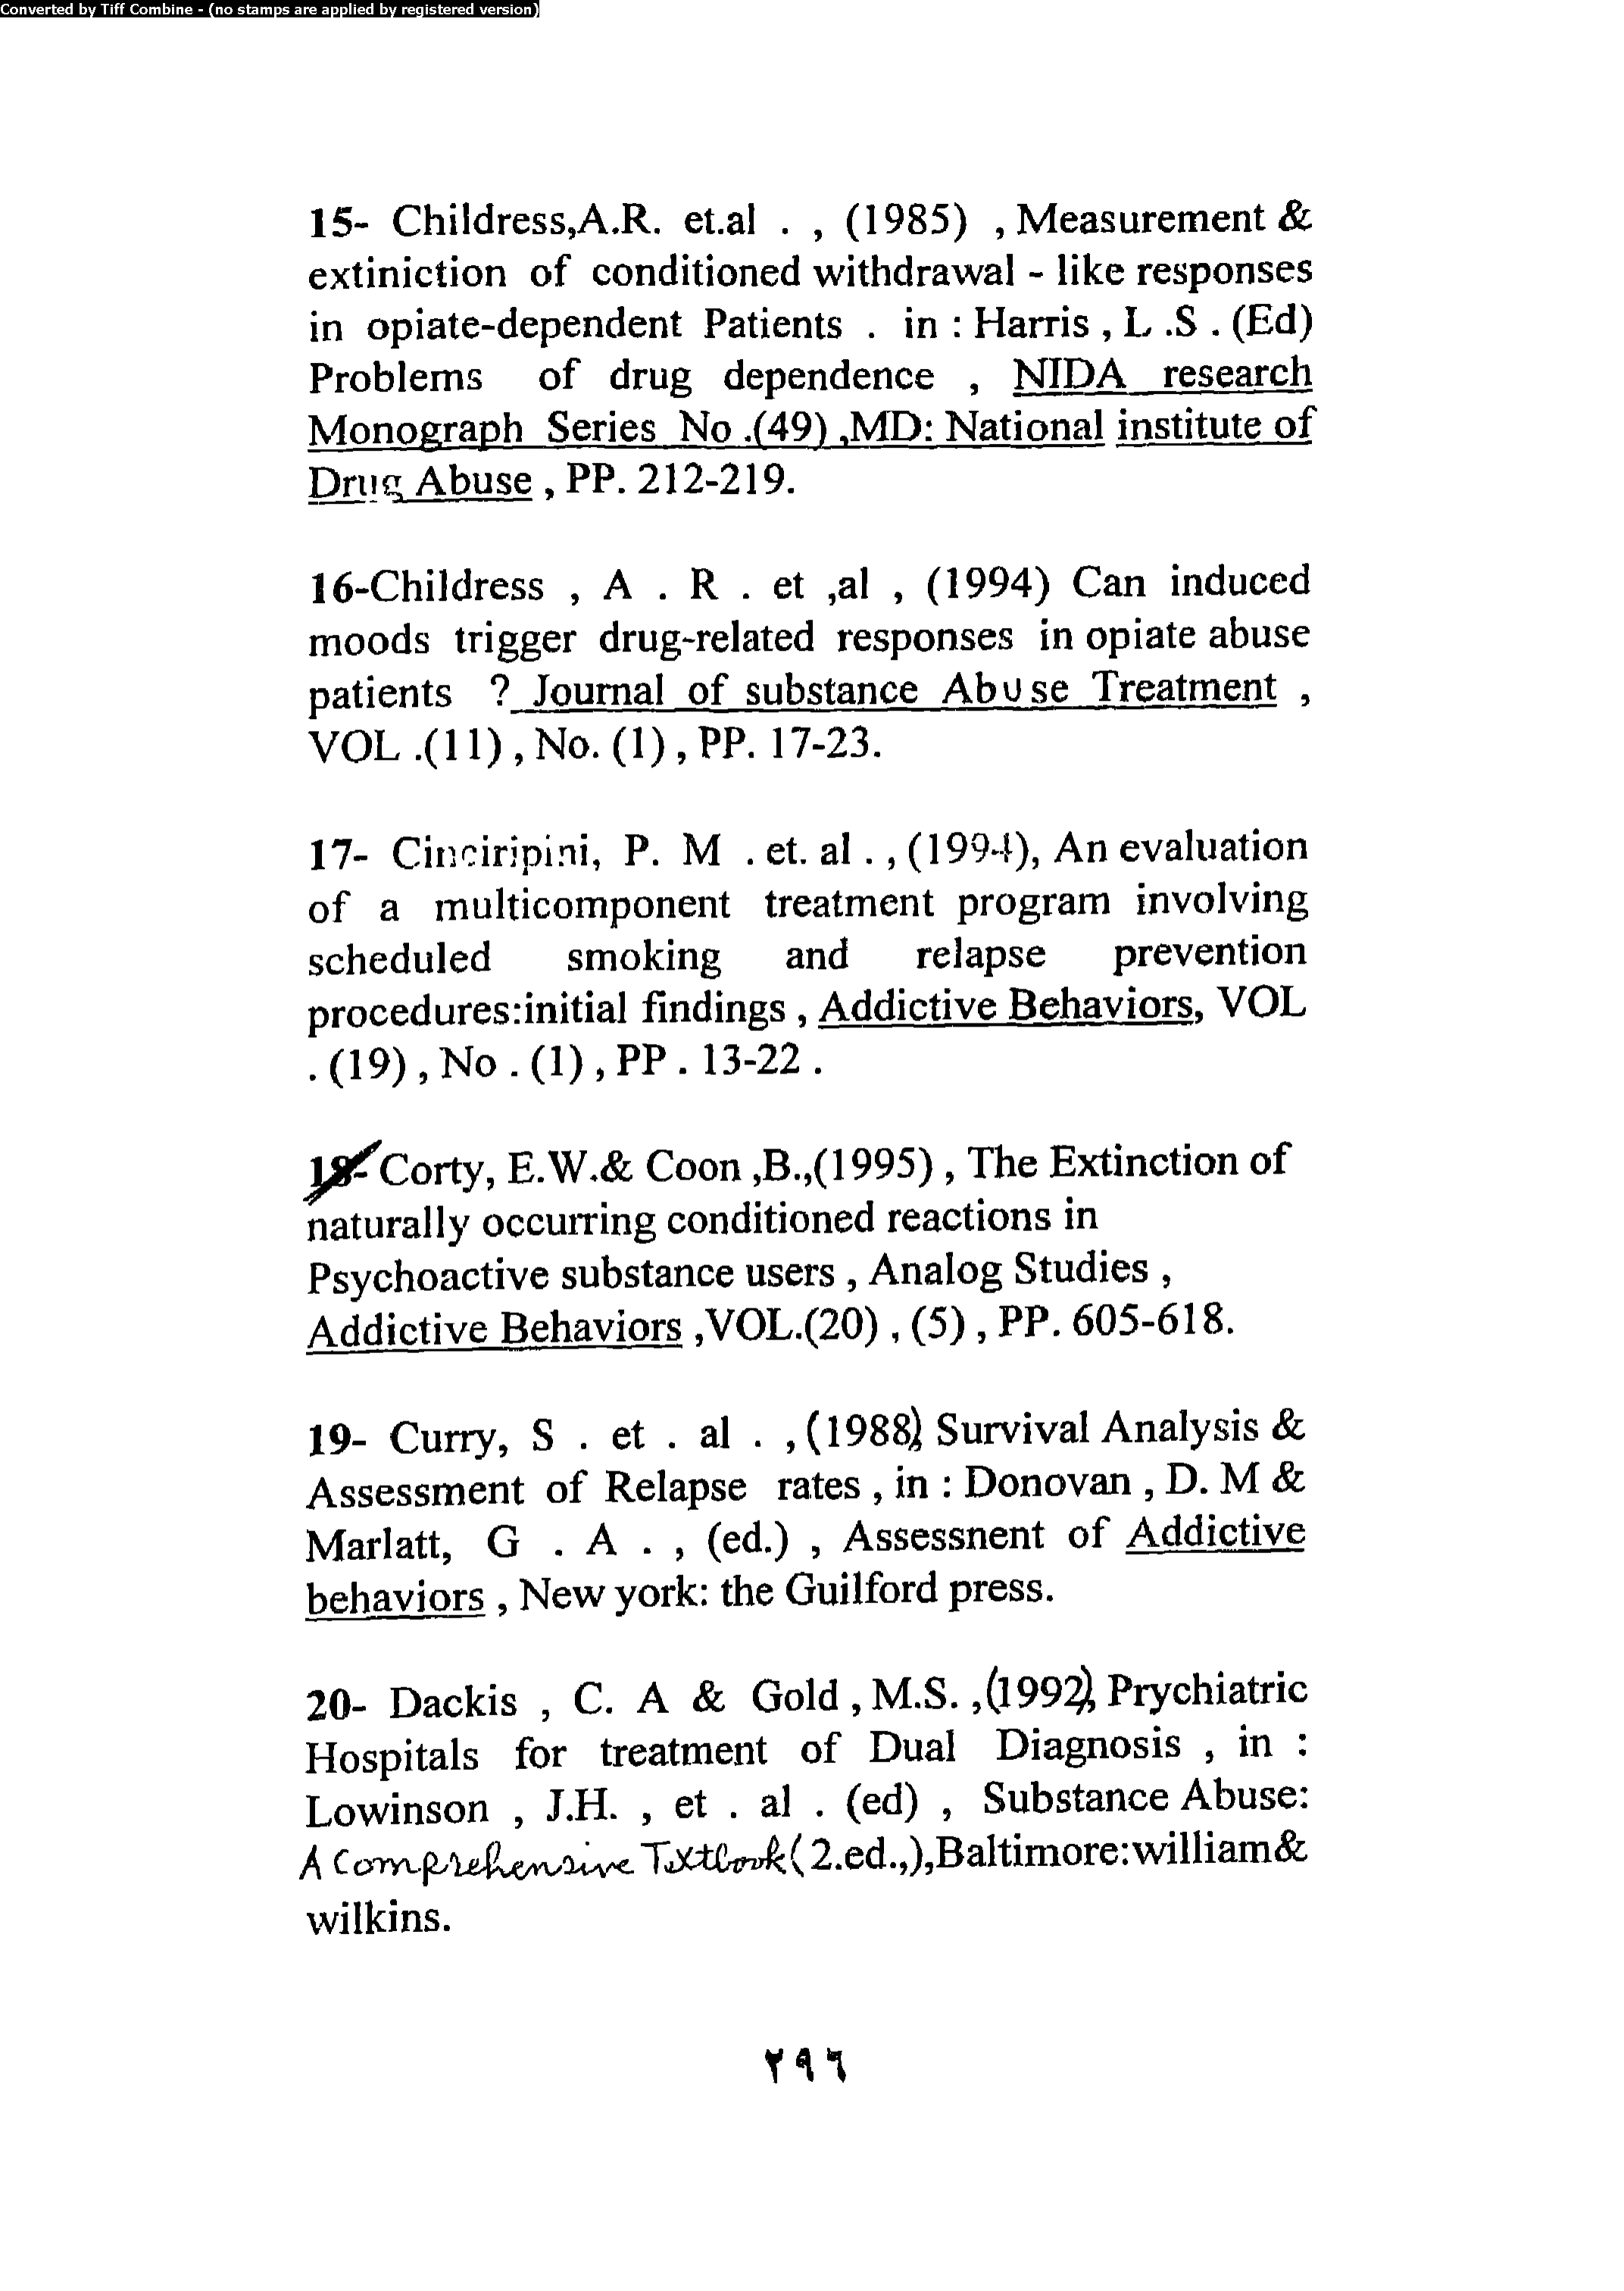 Converted by Tiff Combine - (no stamps are applied by registered version)
15- Childress,A.R. et.al . , (1985) , Measurement &
extiniction of conditioned withdrawal - like responses
in opiate-dependent Patients . in : Harris , L .S . (Ed)
Problems of drug dependence , NIDA research
Monograph Series No .(49) ,MD: National institute of
Drug Abuse , PP. 212-219.
16-Childress , A . R . et ,al , (1994) Can induced
moods trigger drug-related responses in opiate abuse
patients ? Journal of substance Abuse Treatment ,
VOL .(11) , No. (1) , PP. 17-23.
17- Cinciripini, P. M . et. al . , (1994), An evaluation
of a multicomponent treatment program involving
scheduled smoking and relapse prevention
procedures:initial findings , Addictive Behaviors, VOL
. (19) , No . (1) , PP . 13-22 .
18- Corty, E.W.& Coon ,B.,(1995) , The Extinction of
naturally occurring conditioned reactions in
Psychoactive substance users , Analog Studies ,
Addictive Behaviors ,VOL.(20) , (5) , PP. 605-618.
19- Curry, S . et . al . , (1988), Survival Analysis &
Assessment of Relapse rates , in : Donovan , D. M &
Marlatt, G . A . , (ed.) , Assessnent of Addictive
behaviors , New york: the Guilford press.
20- Dackis , C. A & Gold , M.S. ,(1992), Prychiatric
Hospitals for treatment of Dual Diagnosis , in :
Lowinson , J.H. , et . al . (ed) , Substance Abuse:
A Comprehensive Textbook (2.ed.,),Baltimore:william&
wilkins.
٢٩٦